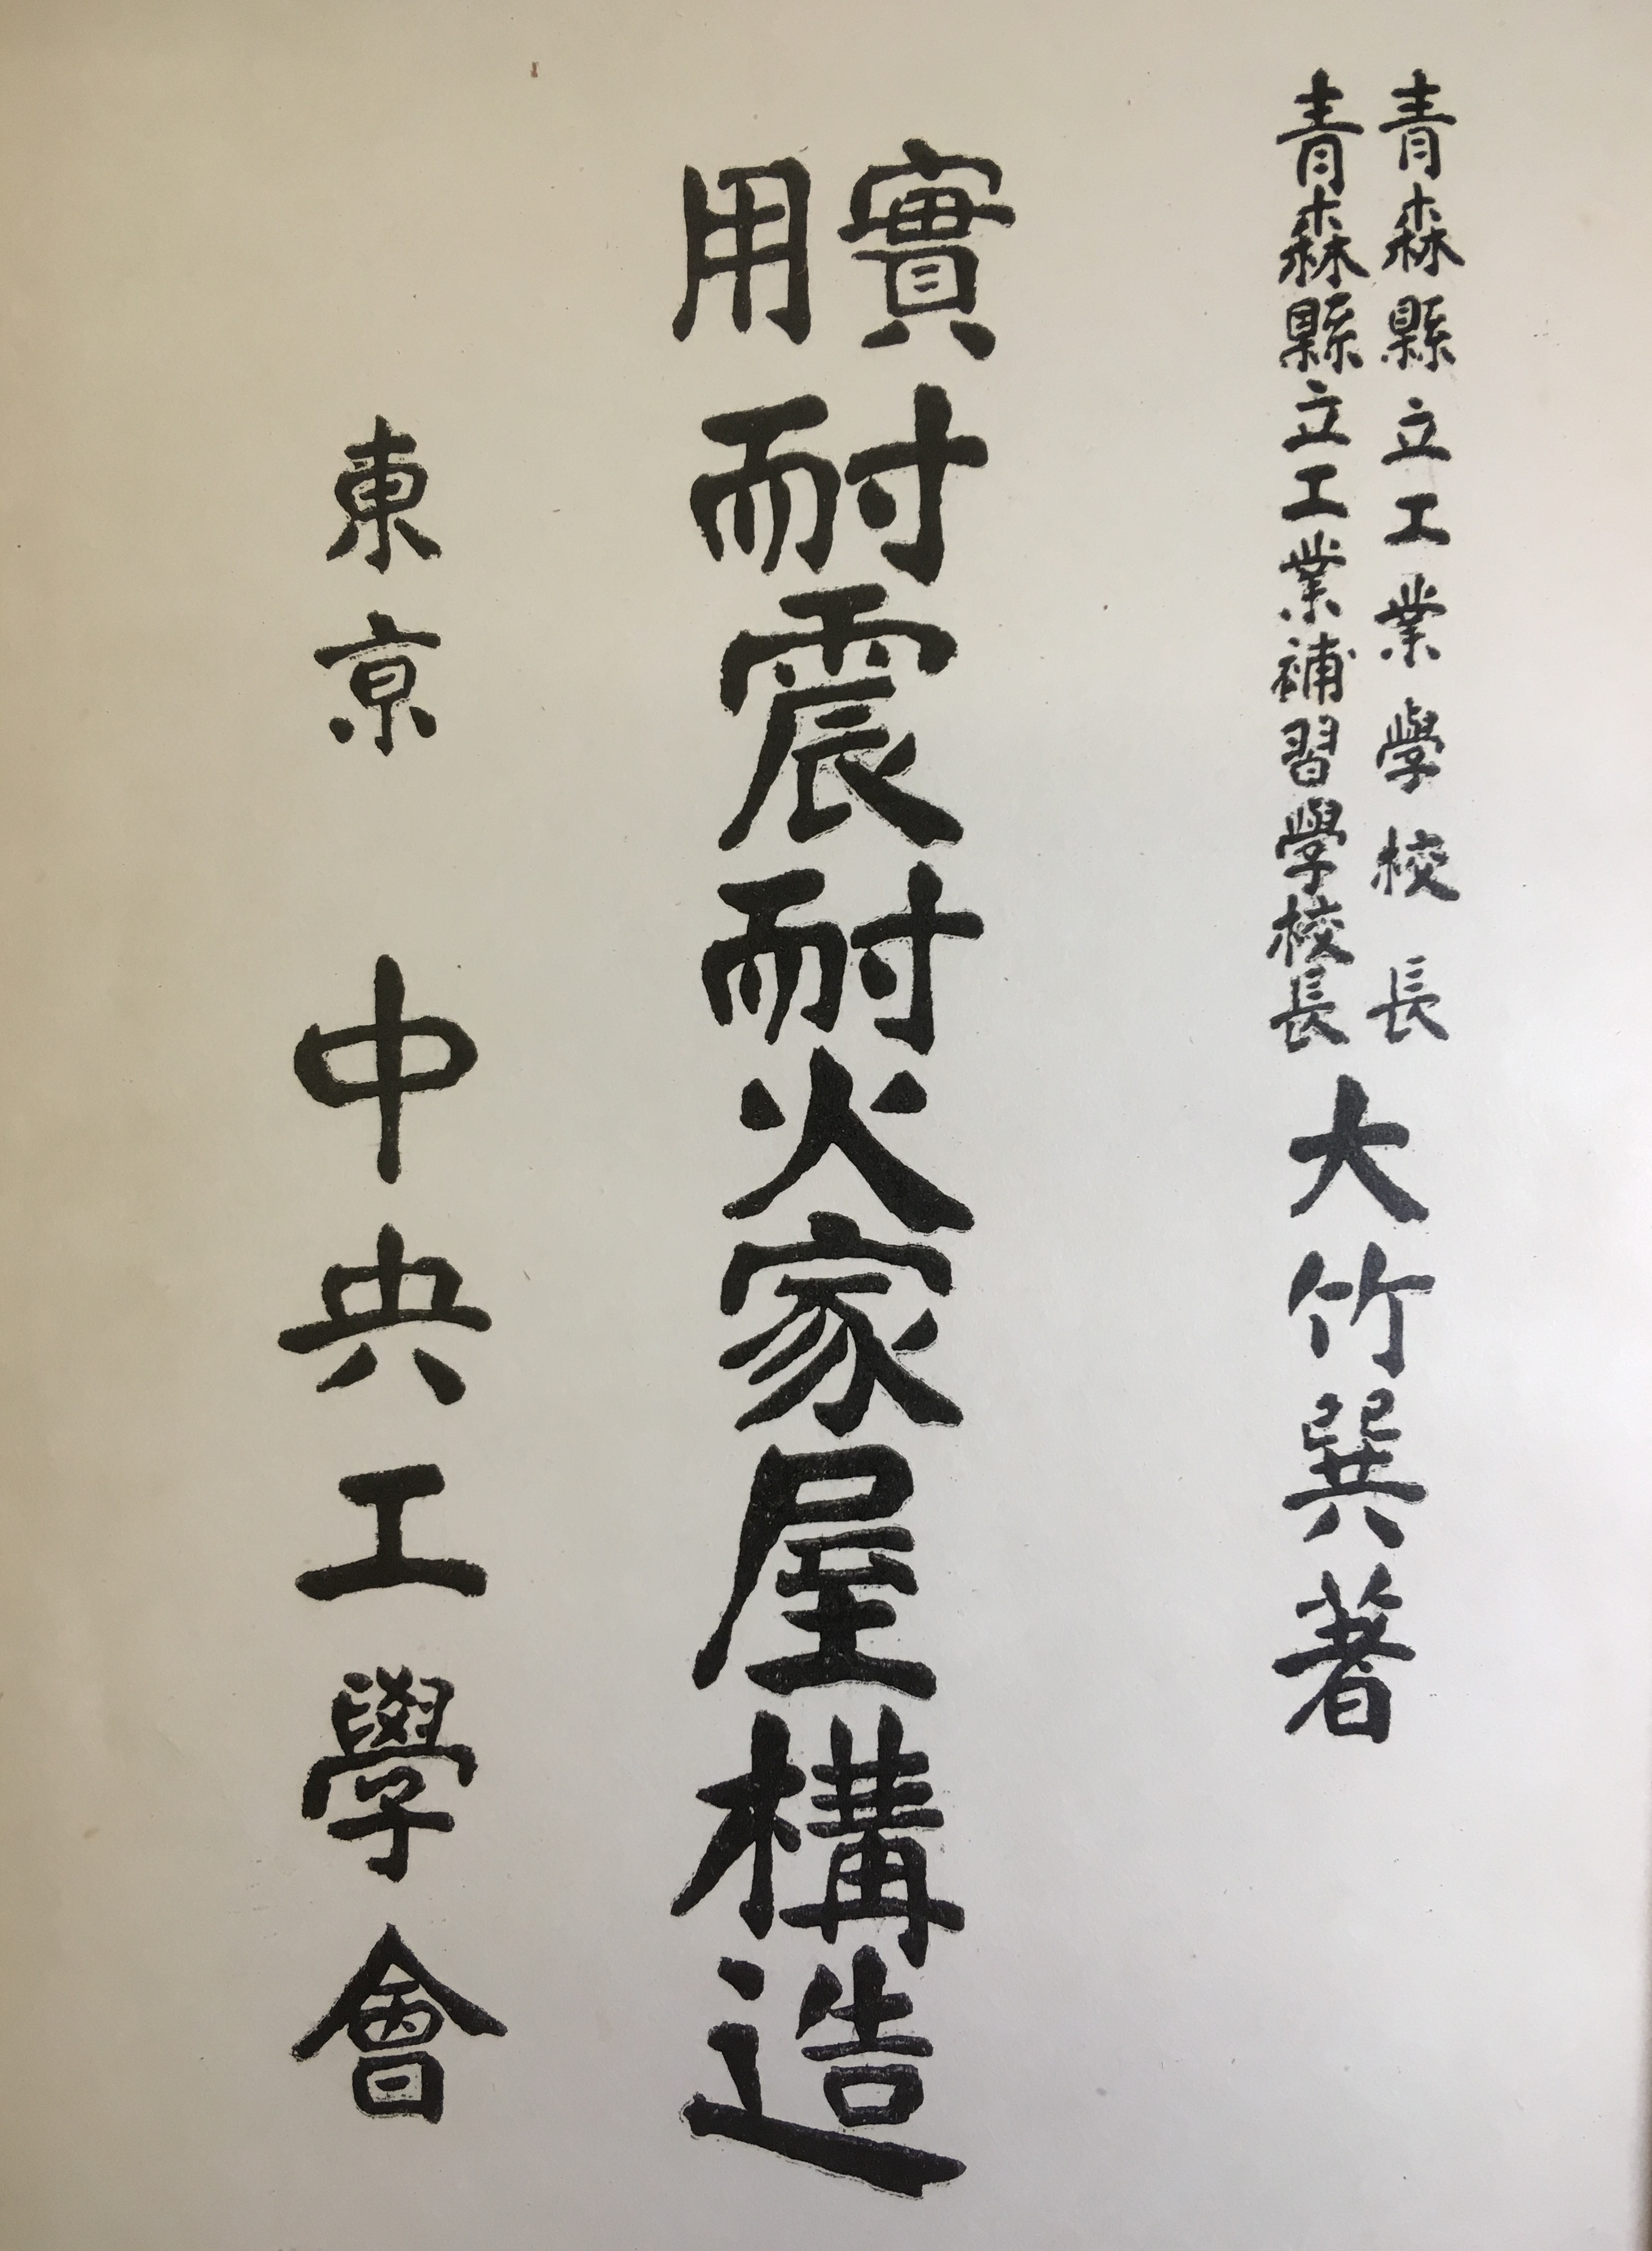 青森縣立工業學校長
青森縣立工業補習學校長
大竹巽著
實用
耐震耐火家屋構造
東京 中央工學會